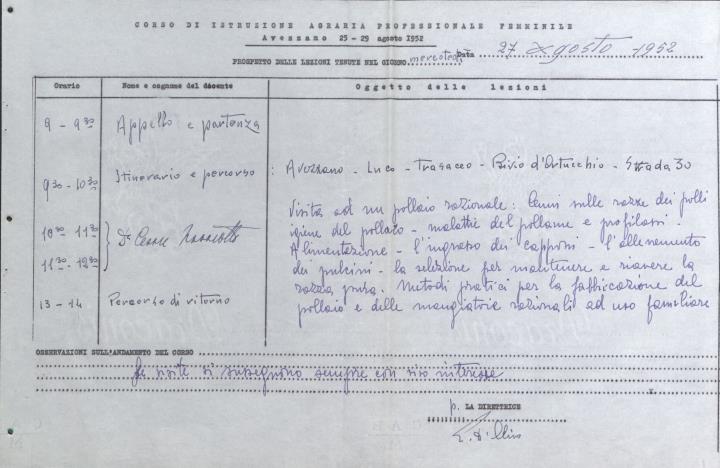 CORSO DI ISTRUZIONE AGRARIA PROFESSIONALE FEMMINILE
Avezzano 25 - 29 agosto 1952
PROSPETTO DELLE LEZIONI TENUTE NEL GIORNO mercoledì Data 27 Agosto 1952
Orario Nome e cognome del docente Oggetto delle lezioni
9 - 9 30 Appello e partenza
9 30 - 10 30 Itinerario e percorso : Avezzano - Luco - Trasacco - Bivio d'Ortucchio - Strada 30
Visita ad un pollaio razionale : Cenni sulle razze dei polli
igiene del pollaio - malattie del pollame e profilassi -
10 30 - 11 30 } Dr Cesare
Alimentazione - l'ingrasso dei capponi - l'allevamento
11 30 - 12 30 dei pulcini - la selezione per mantenere e riavere la
razza pura. Metodi pratici per la fabbricazione del
13 - 14 Percorso di ritorno
pollaio e delle mangiatoie razionali ad uso familiare
OSSERVAZIONI SULL'ANDAMENTO DEL CORSO
Le visite si susseguono sempre con vivo interesse
p. LA DIRETTRICE